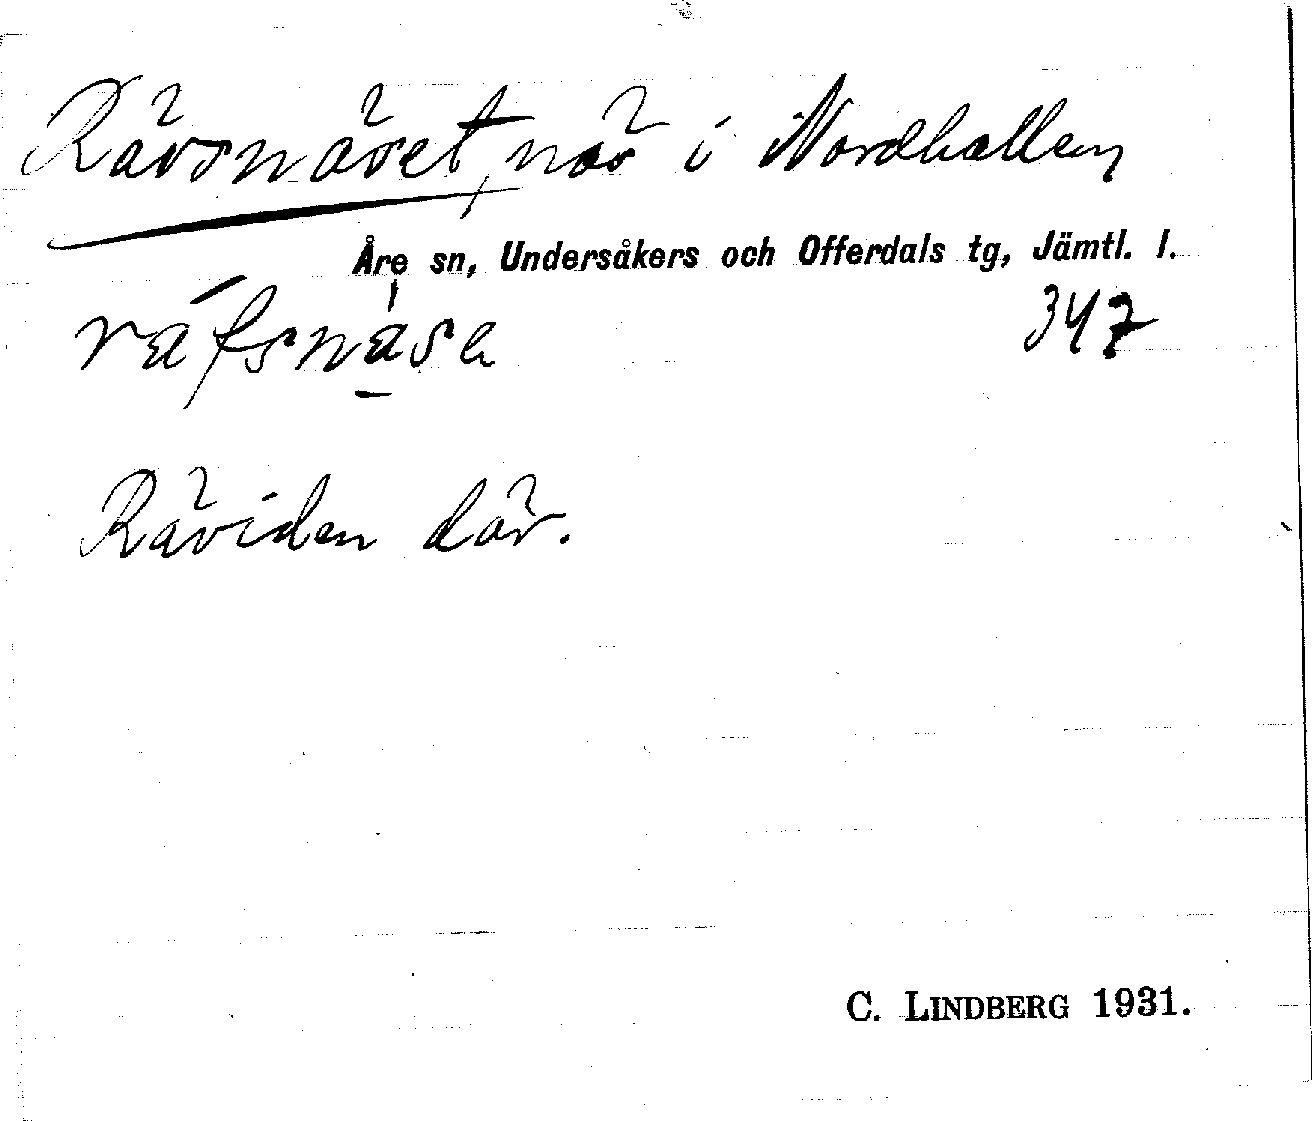 Rävsnäset, näs i Nordhallen
Åre sn, Undersåkers och Offerdals tg, Jämtl. l.
ráfsnàsa
347
Räviden där.
C. LINDBERG 1931.